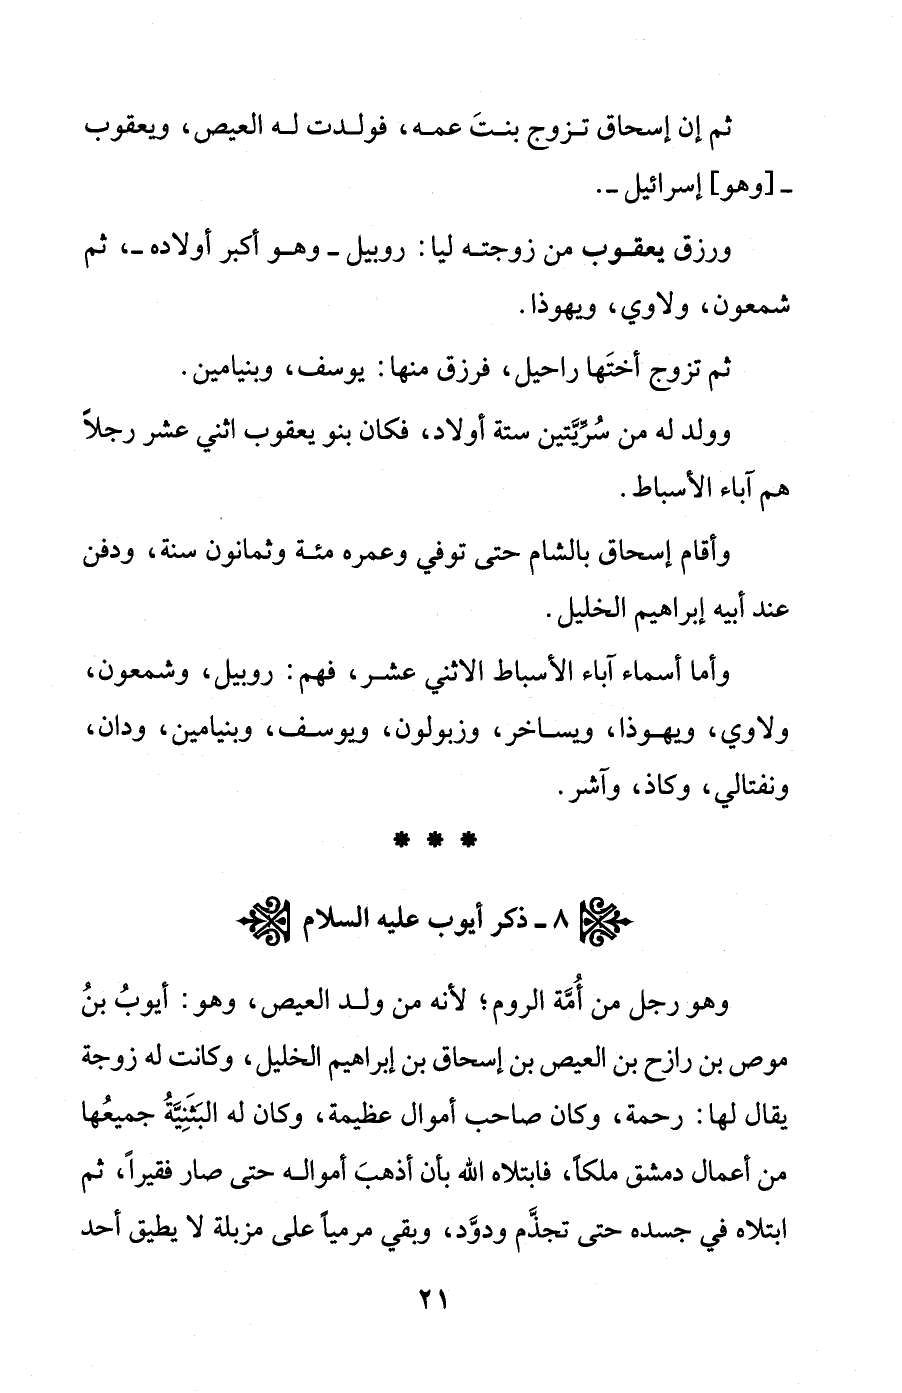 ثم إن إسحاق تزوج بنتَ عمه، فولدت له العيص، ويعقوب
ـ [وهو] إسرائيل ـ.
ورزق يعقوب من زوجته ليا: روبيل ـ وهو أكبر أولاده ـ، ثم
شمعون، ولاوي، ويهوذا.
ثم تزوج أختَها راحيل، فرزق منها: يوسف، وبنيامين.
وولد له من سُرِّيَّتين ستة أولاد، فكان بنو يعقوب اثني عشر رجلاً
هم آباء الأسباط.
وأقام إسحاق بالشام حتى توفي وعمره مئة وثمانون سنة، ودفن
عند أبيه إبراهيم الخليل.
وأما أسماء آباء الأسباط الاثني عشر، فهم: روبيل، وشمعون،
ولاوي، ويهوذا، ويساخر، وزبولون، ويوسف، وبنيامين، ودان،
ونفتالي، وكاذ، وآشر.
* * *
٨ ـ ذكر أيوب عليه السلام
وهو رجل من أُمَّة الروم؛ لأنه من ولد العيص، وهو: أيوبُ بنُ
موص بن رازح بن العيص بن إسحاق بن إبراهيم الخليل، وكانت له زوجة
يقال لها: رحمة، وكان صاحب أموال عظيمة، وكان له البَثَنِيَّةُ جميعُها
من أعمال دمشق ملكاً، فابتلاه الله بأن أذهبَ أمواله حتى صار فقيراً، ثم
ابتلاه في جسده حتى تجذَّم ودوَّد، وبقي مرمياً على مزبلة لا يطيق أحد
٢١